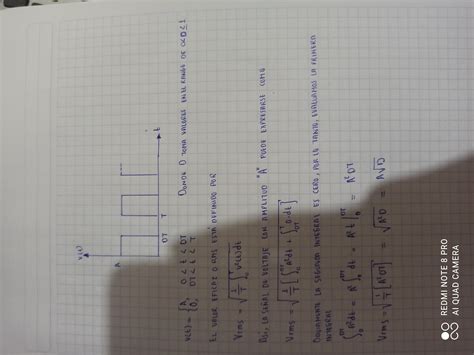 v(t)
A
DT
T
t
v(t) = { A, 0 < t < DT
0, DT < t < T
DONDE D TOMA VALORES EN EL RANGO DE 0<D≤1
EL VALOR EFICAZ O RMS ESTÁ DEFINIDO POR
Vrms = √(1/T ∫₀ᵀ v²(t) dt)
LA SEÑAL DE VOLTAJE CON AMPLITUD "A" PUEDE EXPRESARSE COMO
Vrms = √(1/T [∫₀ᴰᵀ A² dt + ∫ᴅᴛᵀ 0·dt])
OBVIAMENTE LA SEGUNDA INTEGRAL ES CERO, POR LO TANTO, EVALUAMOS LA PRIMERA
INTEGRAL
∫₀ᴰᵀ A² dt = A² ∫₀ᴰᵀ dt = A² t |₀ᴰᵀ = A² DT
Vrms = √(1/T [A² DT]) = √(A² D) = A√D
REDMI NOTE 8 PRO
AI QUAD CAMERA